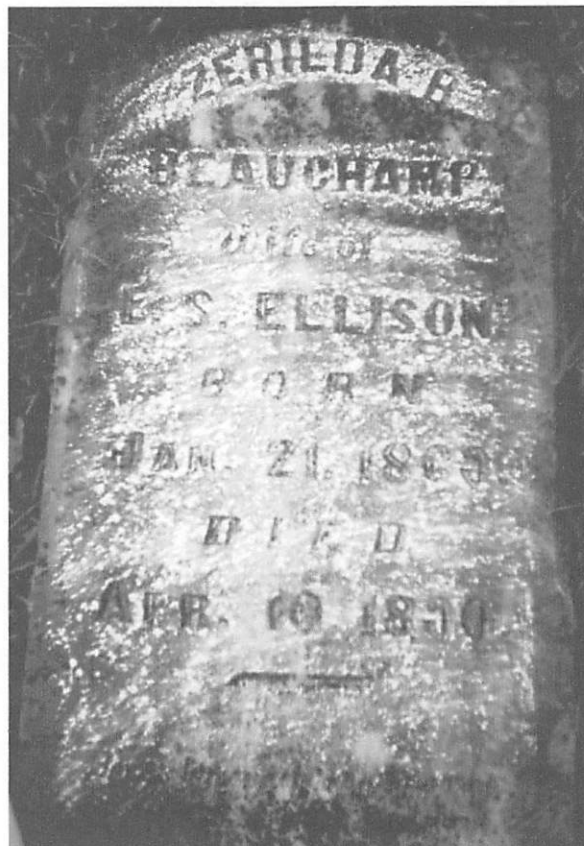 ZERILDA B
BEAUCHAMP
Wife of
E. S. ELLISON
BORN
JAN. 21,
DIED
APR. 10